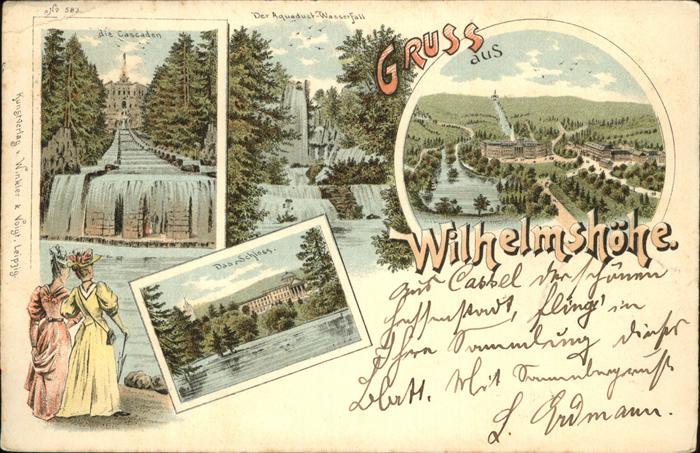 No 583
Der Aquaduct-Wasserfall
die Cascaden
GRUSS
aus
Wilhelmshöhe.
Das Schloss.
Kunstverlag v. Winkler & Voigt, Leipzig.
aus Cassel der schönen
Hessenstadt, flieg' in
Ihre Sammlung dieses
Blatt. Mit Sammlergruß
L. Erdmann.